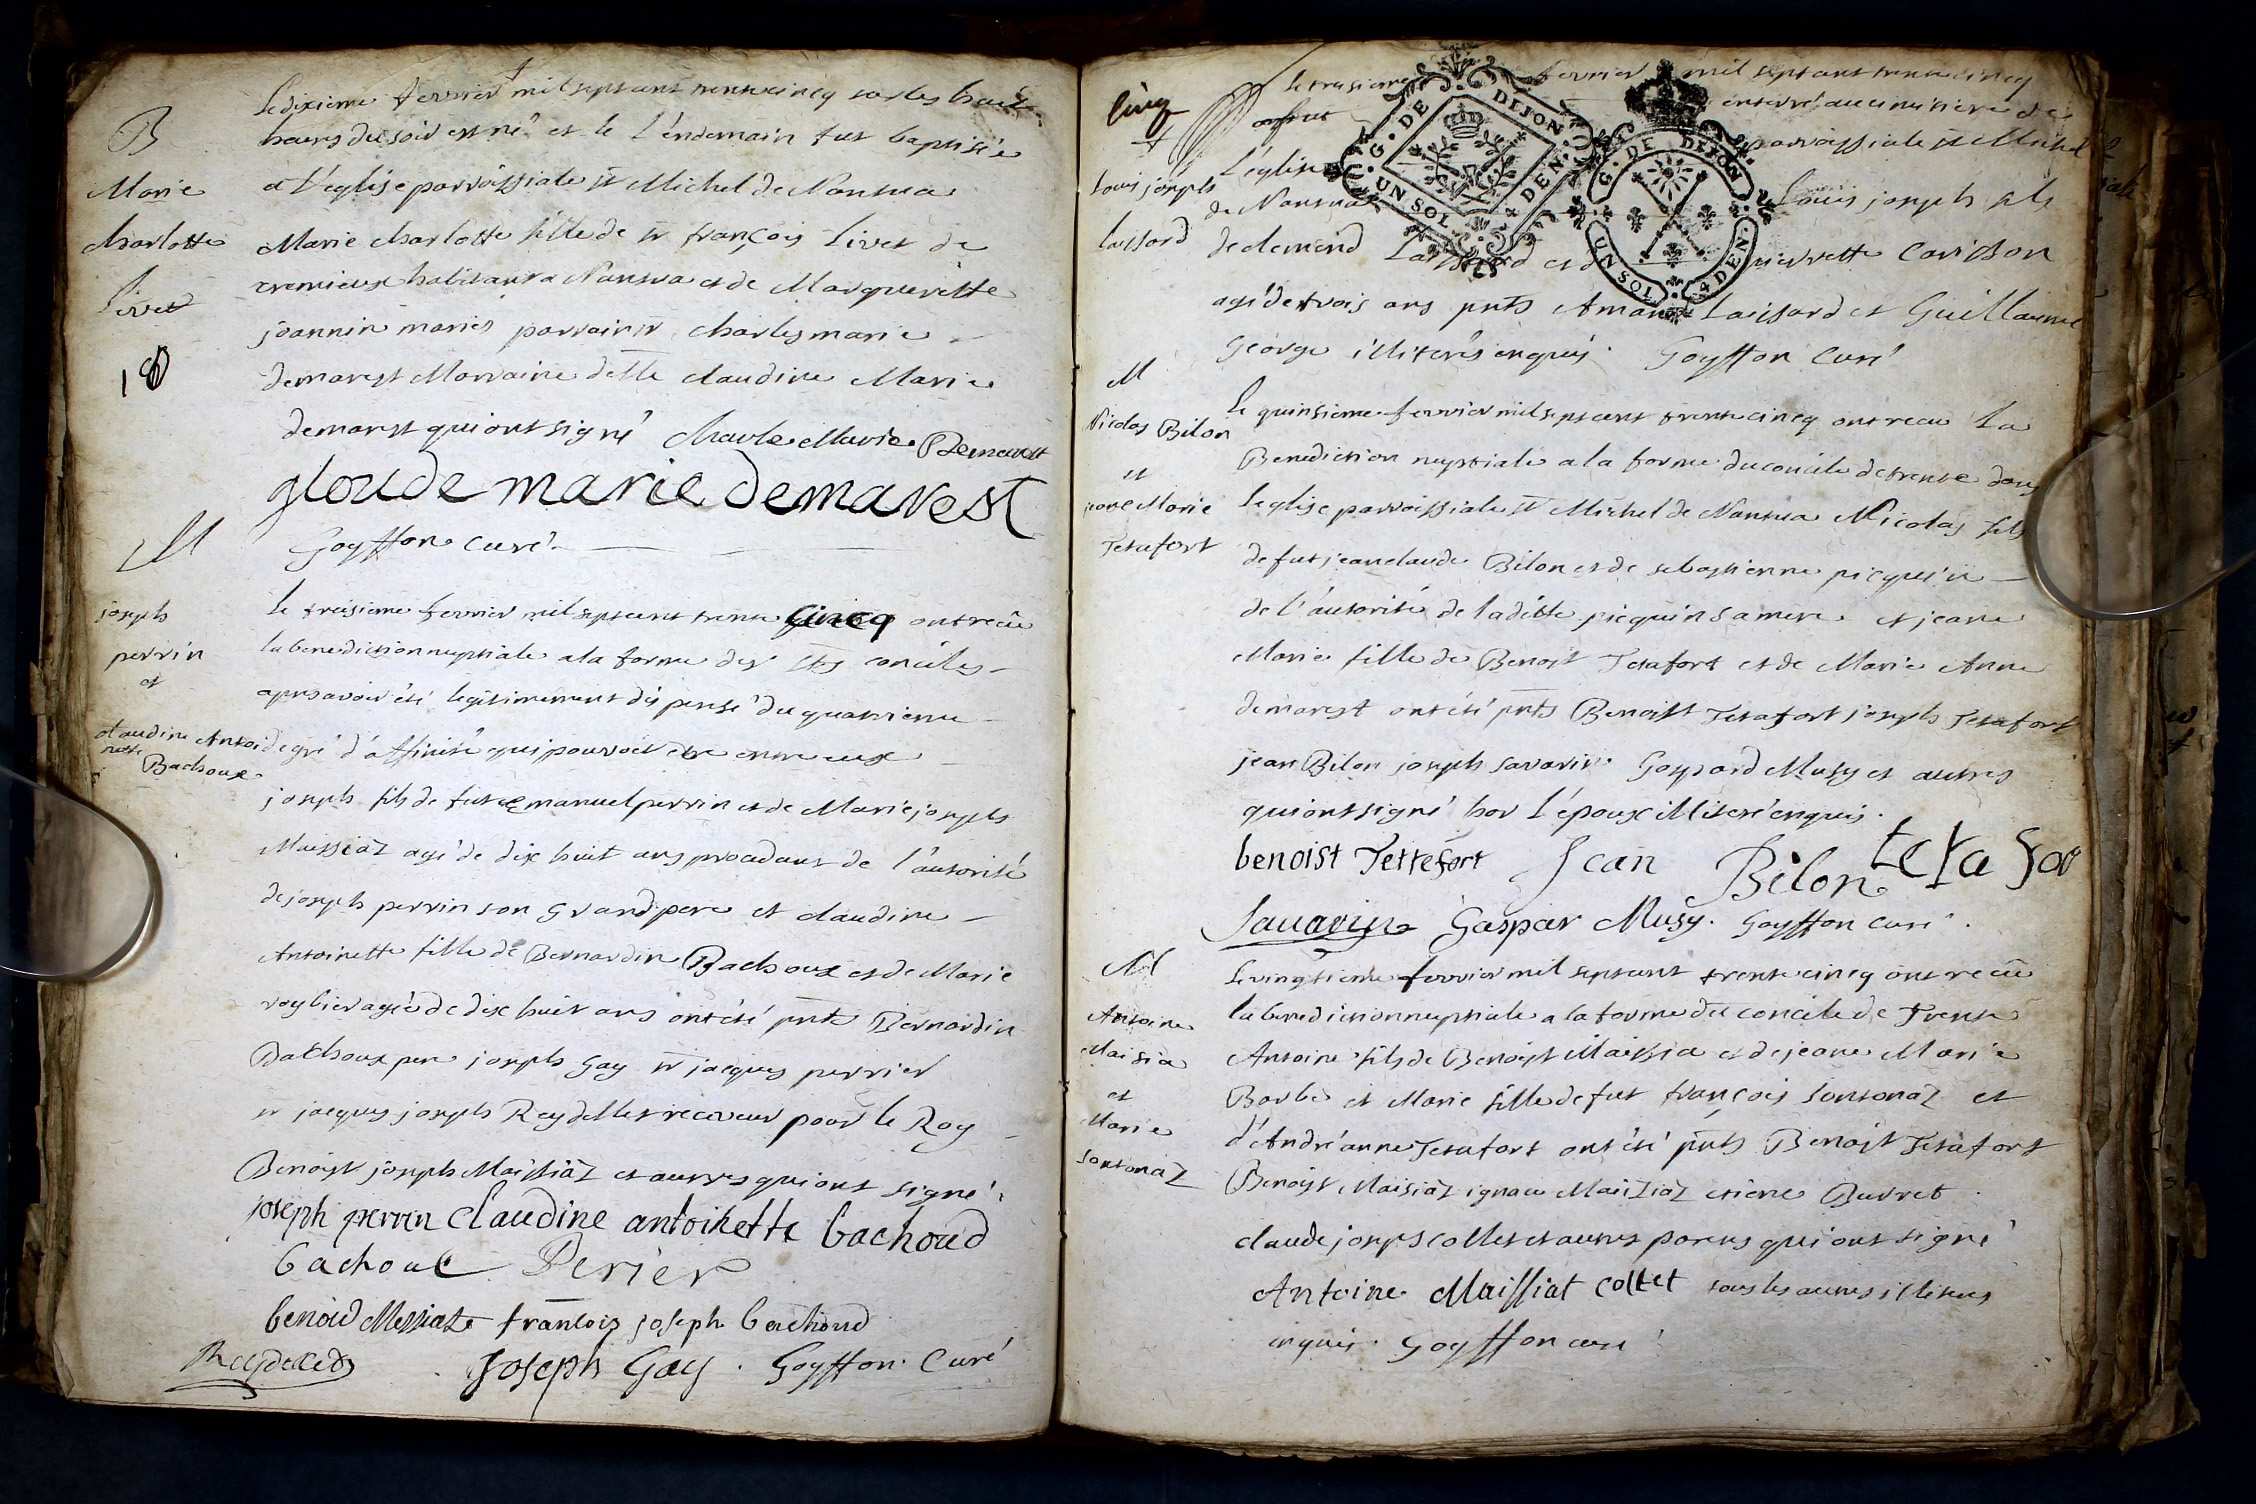 B
Marie
charlotte
Livet
18
Le dixieme fevrier mil sept cent trente cinq sur les huit
heures du soir est né et le l'endemain fut baptisée
a l'eglise parroissiale st Michel de Nantua
Marie charlotte fille de sr françois Livet de
cremieux habitant a Nantua et de Margueritte
joannin mariés parrain sr charles marie
demarest Marraine delle claudine Marie
demarest qui ont signé charle Marie Demarest
gloude marie demarest
Goyffon curé
M
joseph
perrin
et
claudine Antoi
nette
Bachoux
le treisieme fevrier mil sept cent trente cinq ont recü
la benediction nuptiale a la forme des sts conciles
apres avoir été legitimement dispensé du quatrieme
degré d'affinité qui pouvoit etre entre eux
joseph fils de fut emanuel perrin et de Marie joseph
Maissiaz agé de dix huit ans procedant de l'autorité
de joseph perrin son Grand pere et claudine
Antoinette fille de Bernardin Bachoux et de Marie
roybier agée de dix huit ans ont été pnts Bernardin
Bachoux pere joseph Gay sr jacques perrier
sr jacques joseph Reydellet receveur pour le Roy
Benoist joseph Maissiaz et autres qui ont signé
joseph perrin claudine antoinette bachoud
bachoud Perier
benoid Messiaz françois joseph bachoud
Reydellet Joseph Gay . Goyffon Curé
cinq
Louis joseph
Laissard
Le treisieme fevrier mil sept cent trente cinq
enfant enterré au cimetiere de
L'église parroissiale st Michel
de Nantua Louis joseph fils
de clemend Laissard et de pierrette
agé de trois ans pnts Amand Laissard et Guillaume
George illiterés enquis. Goyffon Curé
G. DE DIJON
UN SOL 4 DEN.
G. DE DIJON
UN SOL 4 DEN.
M
Nicolas Bilon
et
jeane Marie
Tetafort
Le quinsieme fevrier mil sept cent trente cinq ont recu La
Benediction nuptiale a la forme du concile de trente dans
l'eglise parroissiale st Michel de Nantua Nicolas fils
de fut jean claude Bilon et de sebastienne picquin
de l'autorité de ladite picquin sa mere et jeane
Marie fille de Benoist Tetafort et de Marie Anne
demarest ont été pnts Benoist Tetafort joseph Tetafort
jean Bilon joseph savarin Gaspard Musy et autres
qui ont signé hor l'epoux illiteré enquis.
benoist Tettefort Jean Bilon tetafor
Savarin Gaspar Musy. Goyffon curé.
M
Antoine
Maisia
et
Marie
sontonaz
Le vingtieme fevrier mil sept cent trente cinq ont recü
la benediction nuptiale a la forme du concile de Trente
Antoine fils de Benoist Maissia et de jeane Marie
Barbe et Marie fille de fut françois sontonaz et
d'Andréanne Tetafort ont été pnts Benoist Tetafort
Benoist Maisiaz ignace Maiziaz etiene Burret
claude joseph collet et autres parens qui ont signé
Antoine Maissiat collet tous les autres illiterés
enquis. Goyffon curé